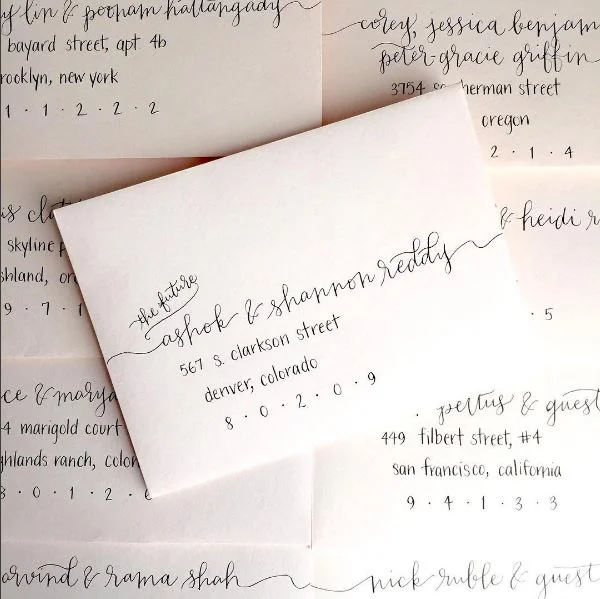 lin & poonam hattangady
bayard street, apt 4b
rooklyn, new york
1 · 1 · 2 · 2 · 2
corey, jessica benjam
peter-gracie griffin
3754 herman street
oregon
2 · 1 · 4
skyline
hland, or
9 · 7 · 1
& heidi r
· 5
the future
ashok & shannon reddy
567 s. clarkson street
denver, colorado
8 · 0 · 2 · 0 · 9
ce & marya
4 marigold court
ghlands ranch, color
8 · 0 · 1 · 2 ·
pettus & guest
449 filbert street, #4
san francisco, california
9 · 4 · 1 · 3 · 3
arvind & rama shah
nick ruble & guest